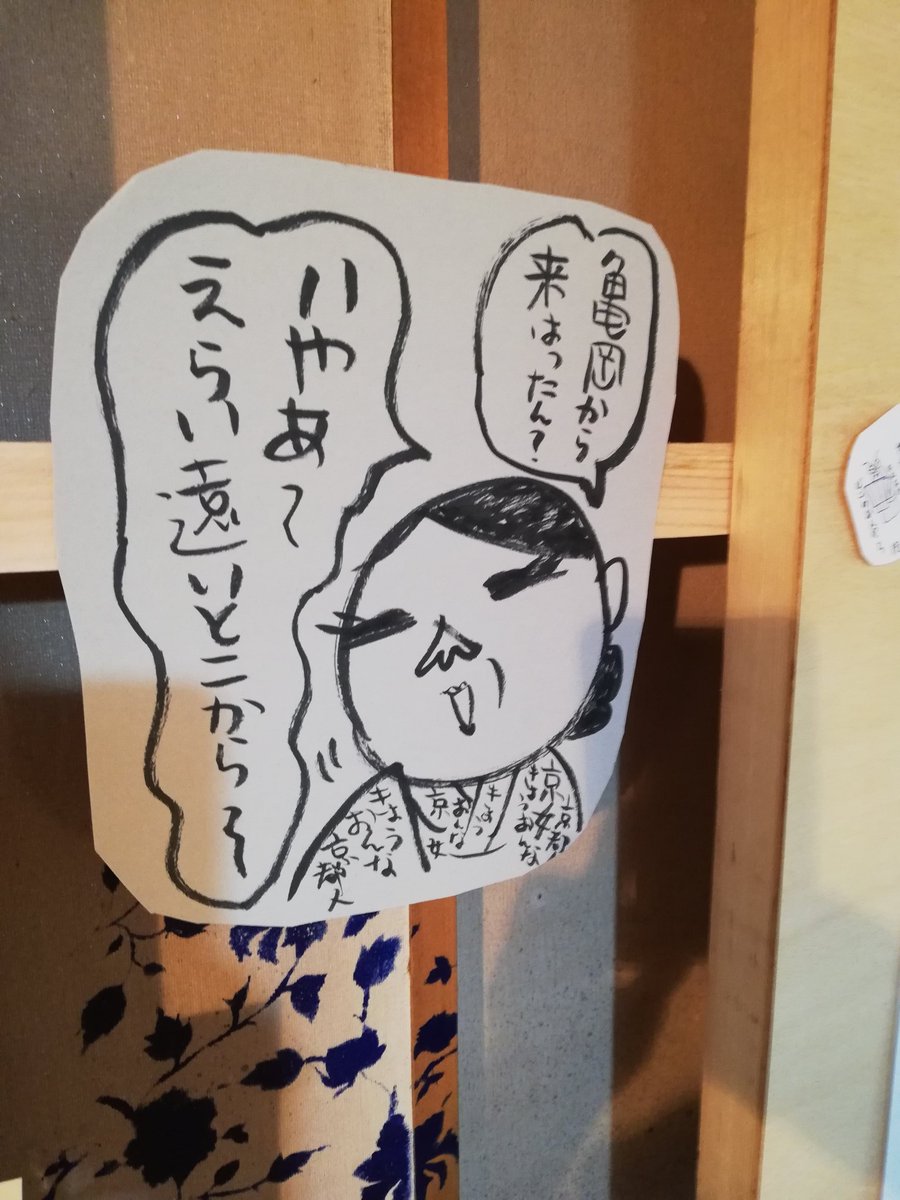 亀岡から
来はったん?
いやあ〜
えらい遠いとこから〜
京都人
きょうおんな
京女
きょう
おんな
京女
きょうな
おんな